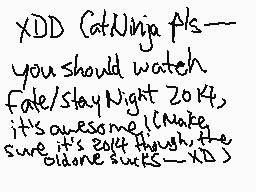 XDD CatNinja pls—
you should watch
Fate/Stay Night 2014,
it's awesome! (Make
sure it's 2014 though, the
old one sucks—XD)